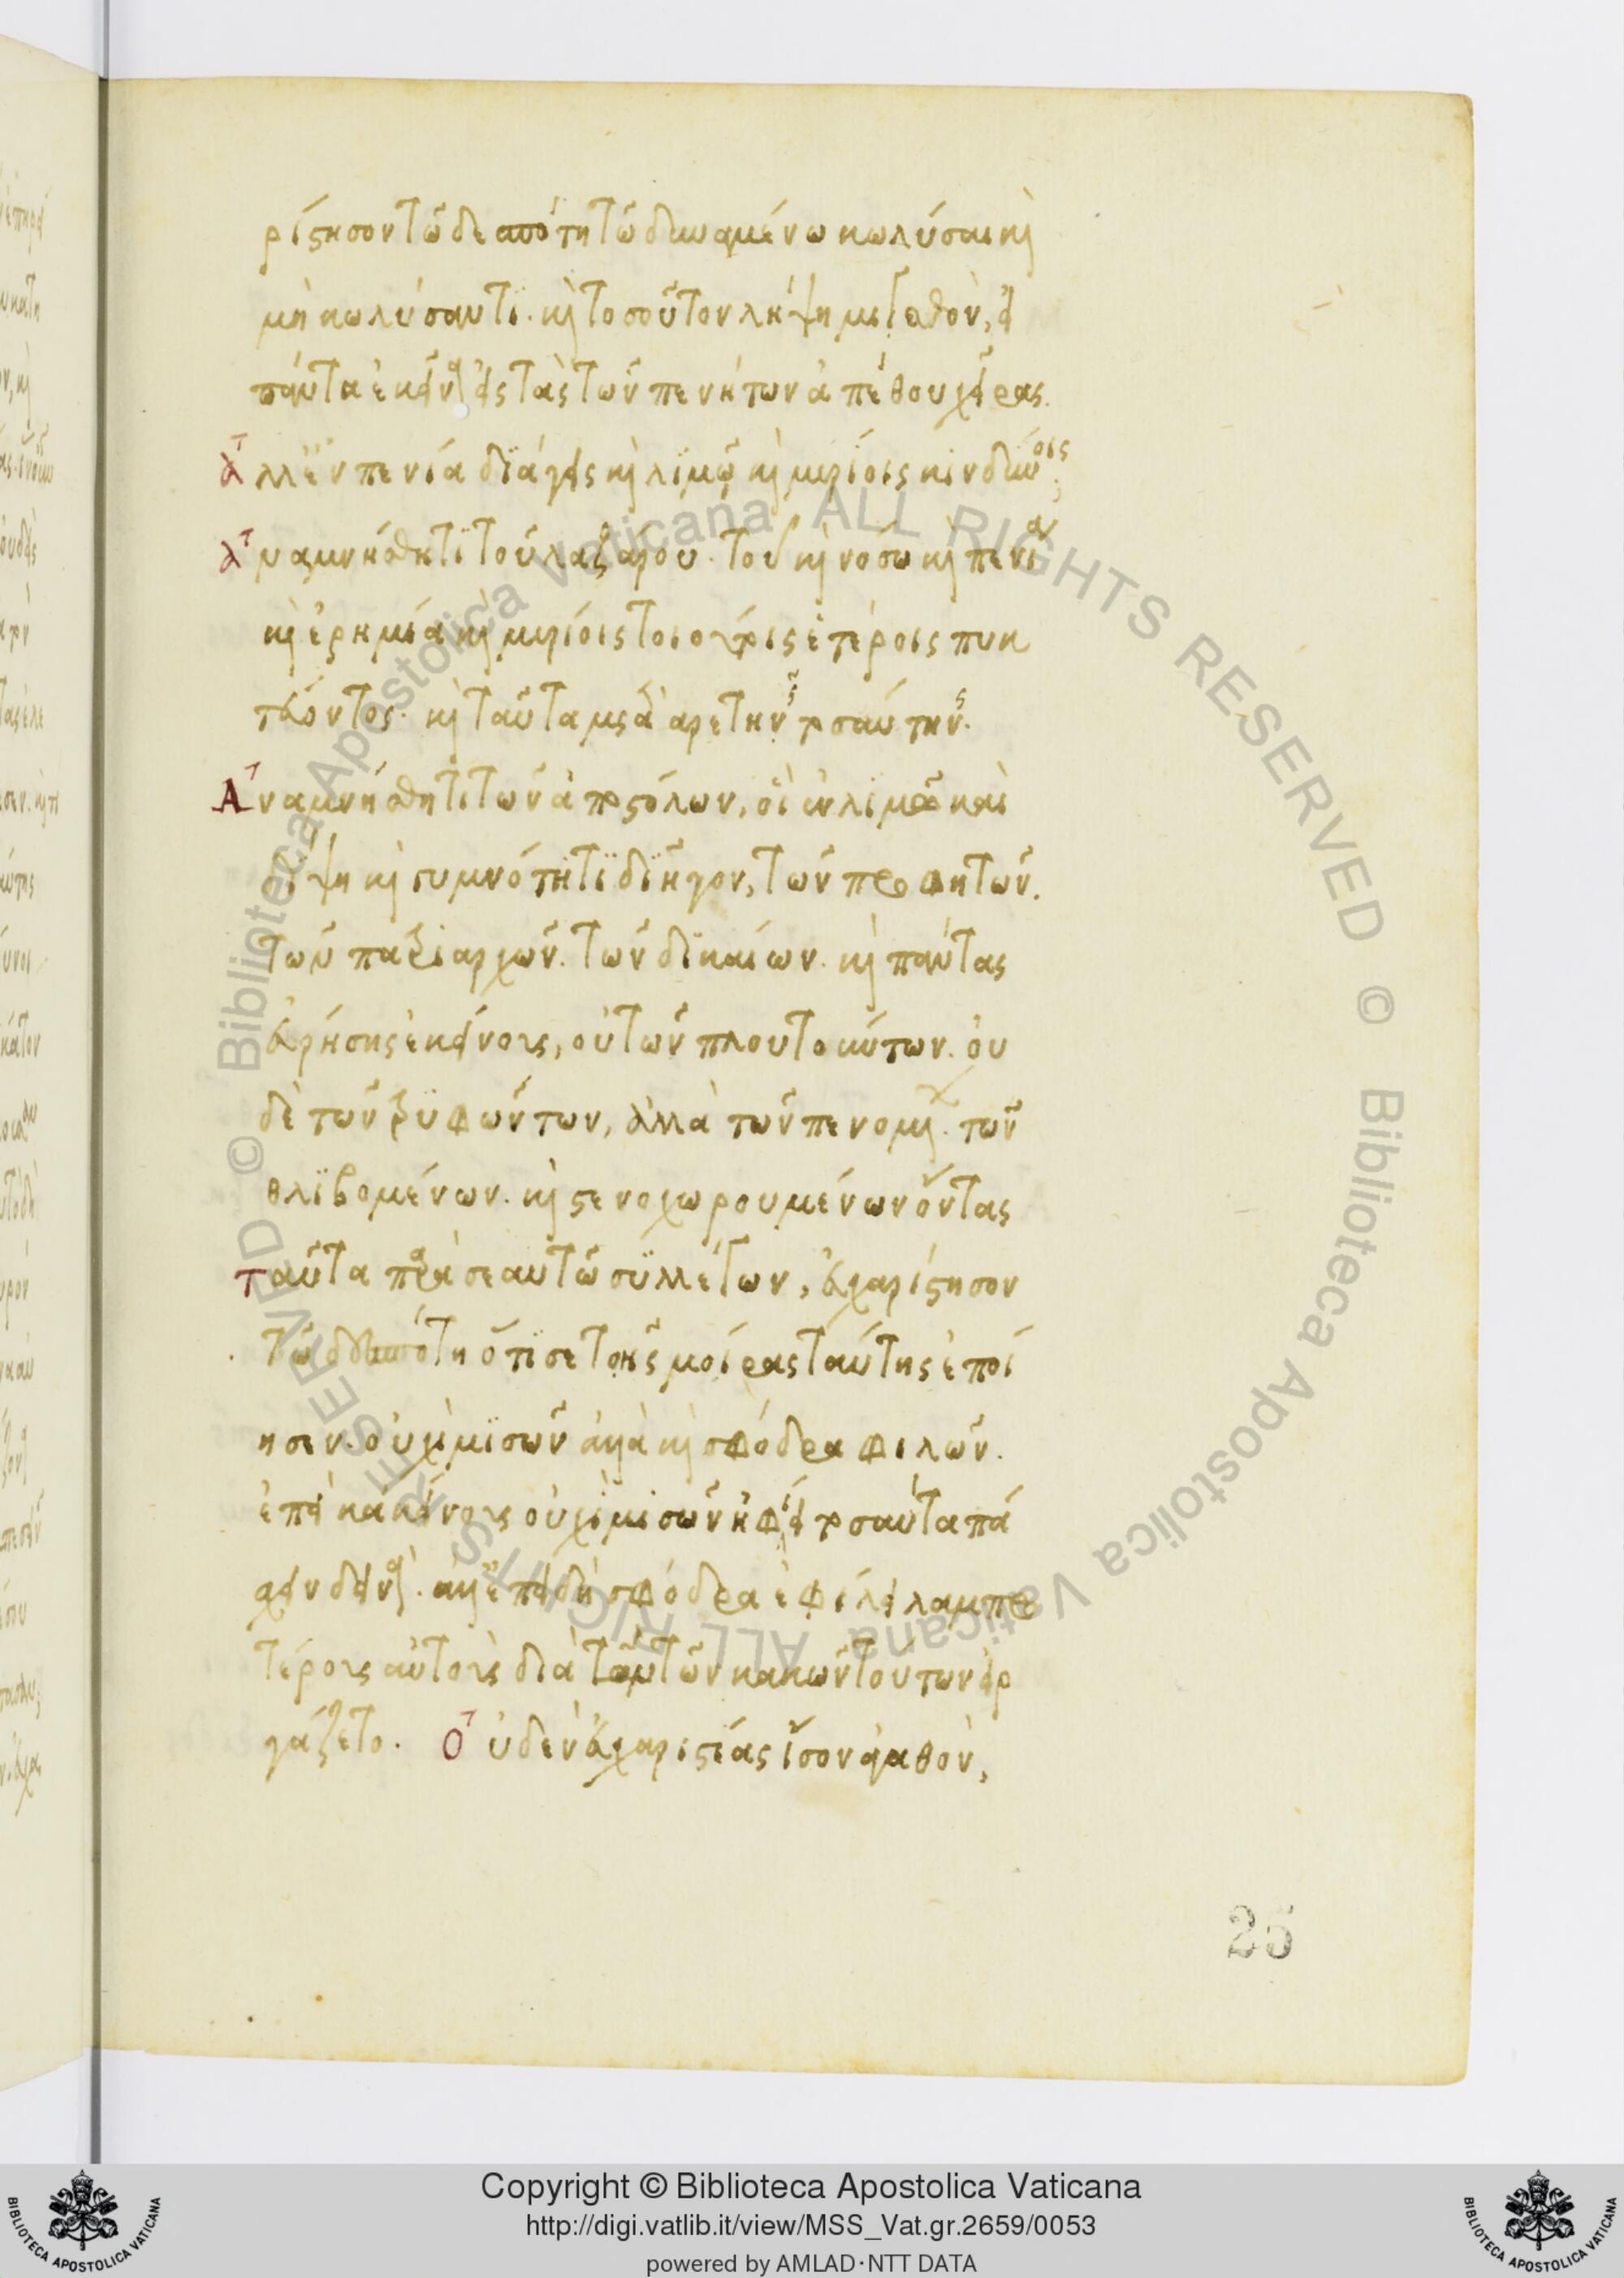 ρίστησον τῶ δεσπότη τῶ δυναμένω κωλύσαι καὶ
μὴ κωλύσαντι. καὶ τοσοῦτον λήψη μισθὸν, εἰ
πάντα ἐκεῖνα εἰς τὰς τῶν πενήτων ἀπέθου χεῖρας.
ἀλλ' ἐν πενία διάγεις καὶ λιμῶ καὶ μυρίοις κινδύνοις;
ἀναμνήσθητι τοῦ λαζάρου. τοῦ καὶ νόσω καὶ πενία
καὶ ἐρημία καὶ μυρίοις τοιούτοις ἑτέροις πυκ
τεύοντος. καὶ ταῦτα μετὰ ἀρετὴν τοσαύτην.
Ἀναμνήσθητι τῶν ἀποστόλων, οἳ ἐν λιμῶ καὶ
δίψη καὶ γυμνότητι διῆγον, τῶν προφητῶν.
τῶν πατριαρχῶν. τῶν δικαίων. καὶ πάντας
εὑρήσης ἐκείνους, οὐ τῶν πλουτούντων. οὐ
δὲ τῶν τρυφώντων, ἀλλὰ τῶν πενομένων. τῶν
θλιβομένων. καὶ στενοχωρουμένων ὄντας
ταῦτα παρὰ σεαυτῶ συλλέγων, εὐχαρίστησον
τῶ δεσπότη ὅτι σε τῆς μοίρας ταύτης ἐποί
ησεν. οὐχὶ μισῶν ἀλλὰ καὶ σφόδρα φιλῶν.
ἐπεὶ κἀκείνους οὐχὶ μισῶν ἠφίει τοσαῦτα πά
σχειν δεινὰ. ἀλλ' ἐπειδὴ σφόδρα ἐφίλει λαμπρο
τέρους αὐτοὺς διὰ τῶν κακῶν τούτων εἰρ
γάζετο. Οὐδὲν εὐχαριστίας ἴσον ἀγαθὸν,
25
Copyright © Biblioteca Apostolica Vaticana
http://digi.vatlib.it/view/MSS_Vat.gr.2659/0053
powered by AMLAD·NTT DATA
BIBLIOTECA APOSTOLICA VATICANA
BIBLIOTECA APOSTOLICA VATICANA
© Biblioteca Apostolica Vaticana ALL RIGHTS RESERVED
© Biblioteca Apostolica Vaticana ALL RIGHTS RESERVED